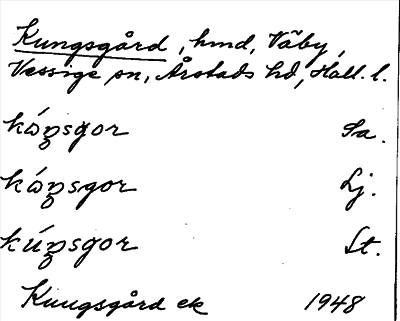 Kungsgård, hmd, Väby,
Vessige sn, Årstads hd, Hall. l.
kóŋsgor Sa.
kóŋsgor Lj.
kúŋsgor St.
Kungsgård ek 1948